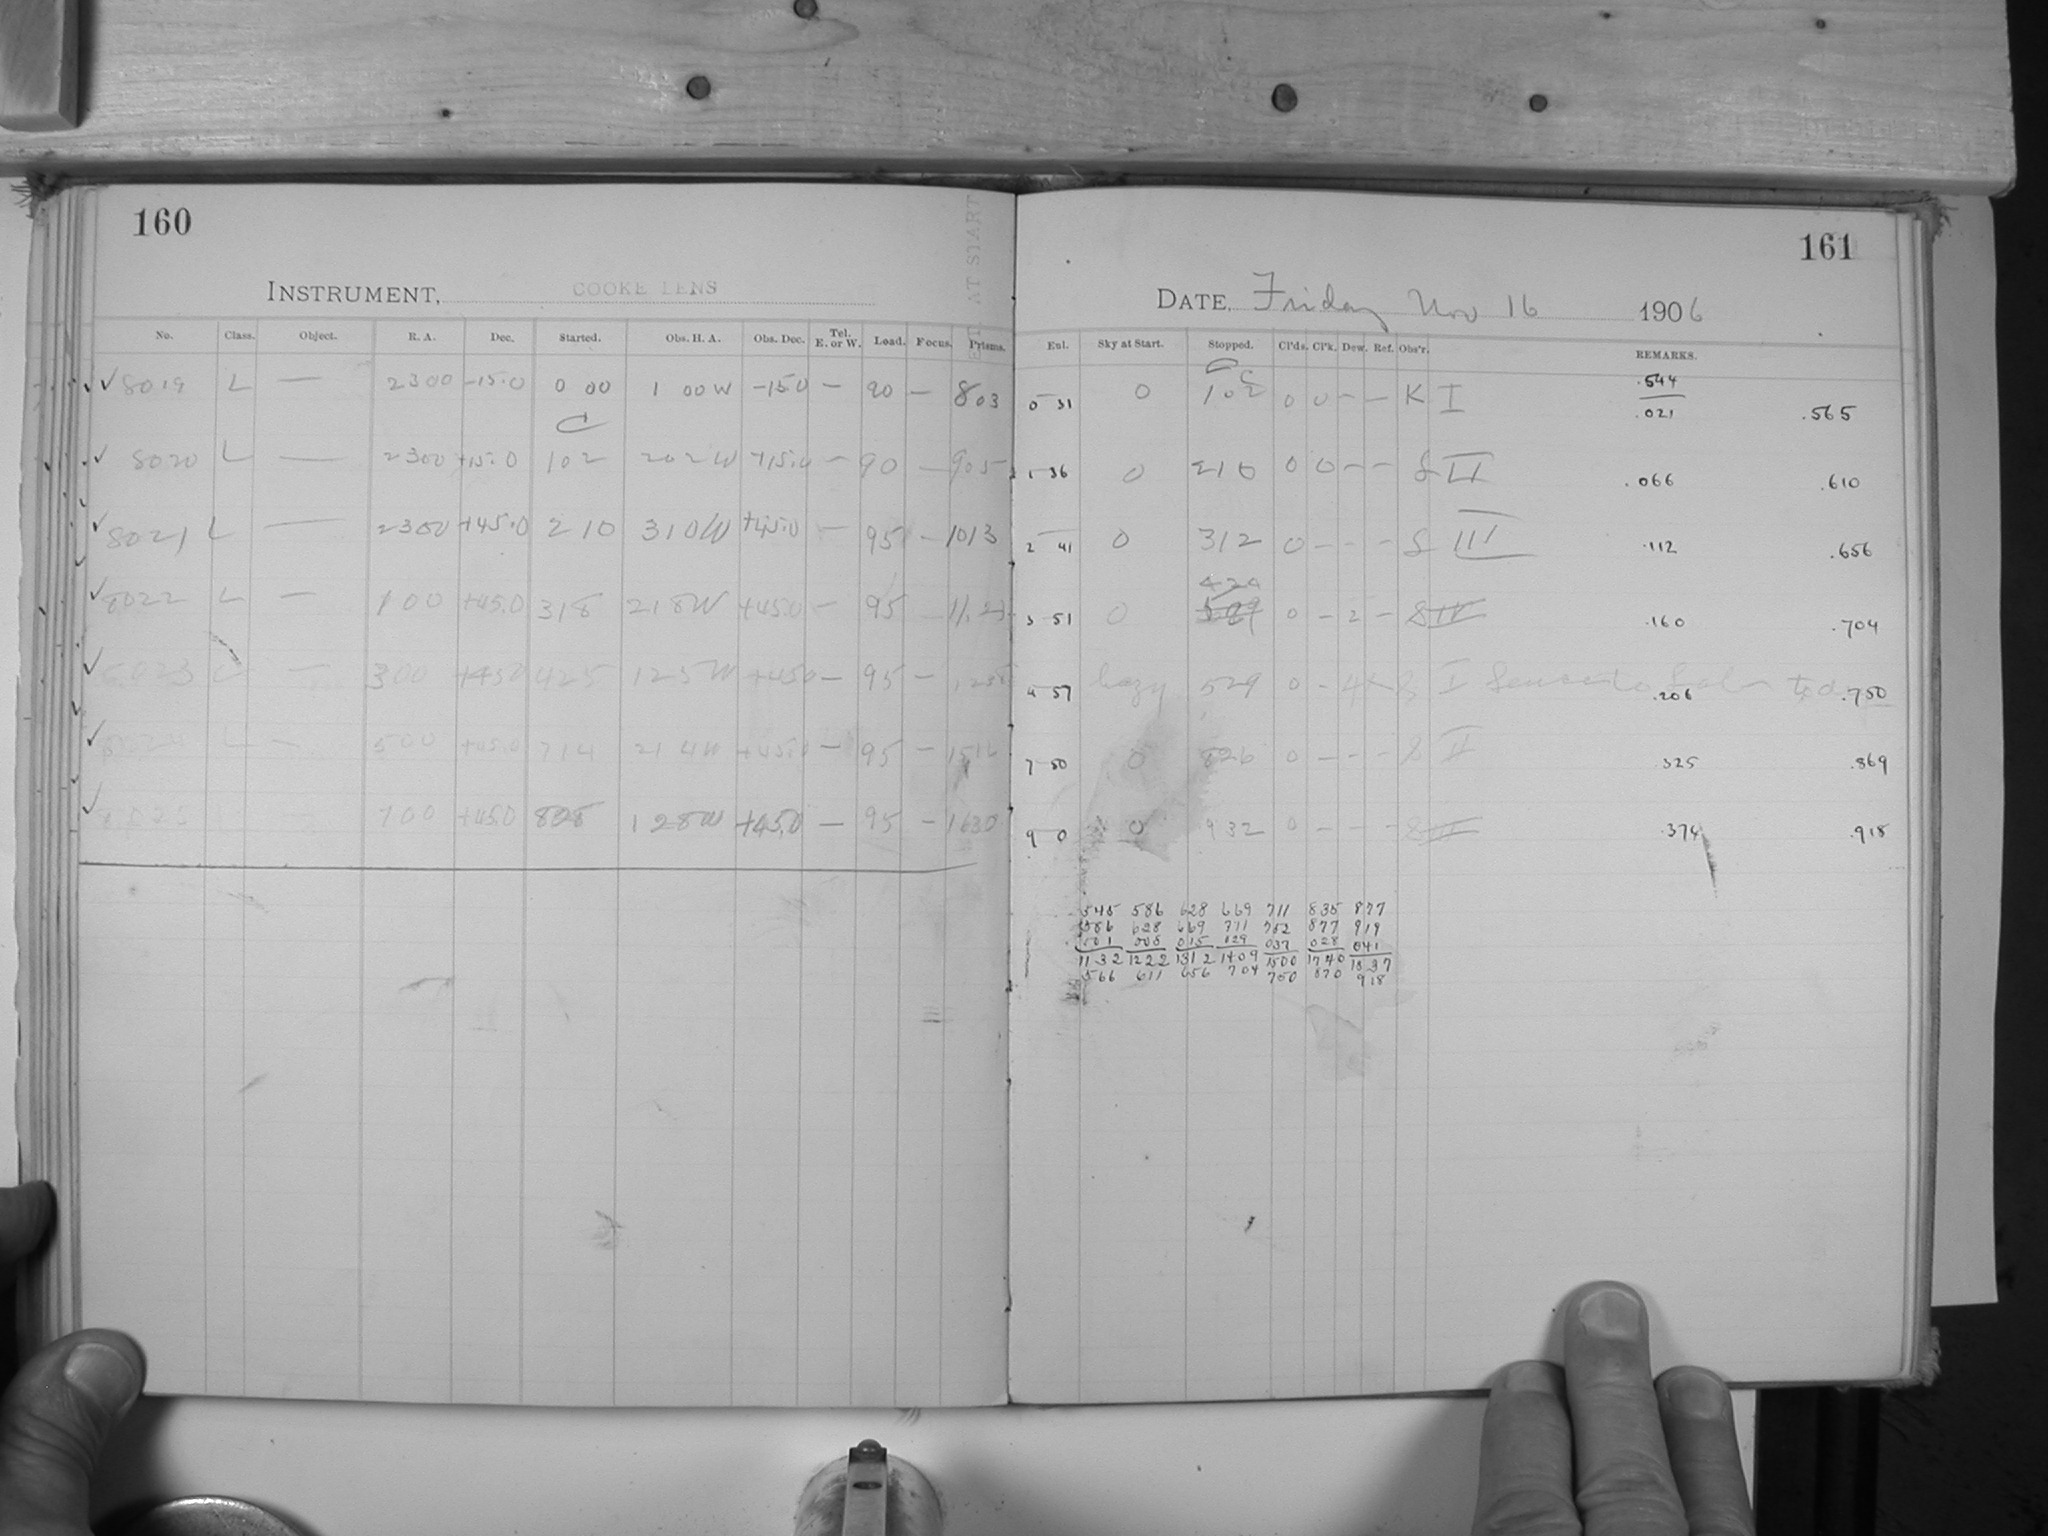 160
INSTRUMENT, COOKE LENS
No. Class. Object. R. A. Dec. Started. Obs. H. A. Obs. Dec. Tel. E. or W. Load. Focus. Prisms.
8019 L — 2300 -15.0 0 00 1 00W -15.0 — 90 — 803
8020 L — 2300 +15.0 102 202W +15.0 — 90 — 905
8021 L — 2300 +45.0 210 310W +45.0 — 95 — 1013
8022 L — 100 +45.0 318 218W +45.0 — 95 — 11.23
8023 — 300 +45.0 425 125W +45.0 — 95 —
L — 500 +45.0 714 214W +45.0 — 95 — 1516
700 +45.0 828 128W +45.0 — 95 — 1630
161
DATE, Friday Nov 16 1906
Eul. Sky at Start. Stopped. Cl'ds. Cl'k. Dew. Ref. Obs'r. REMARKS.
0 31 0 102 0 0 — — K I .544 .021 .565
1 36 0 210 0 0 — — S II .066 .610
2 41 0 312 0 — — — S III .112 .656
424
3 51 0 0 — 2 — S IV .160 .704
4 57 hazy 529 0 — 4 S I .206 .750
7 50 0 826 0 — — — S II .325 .869
9 0 0 932 0 — — — S .374 .918
545 586 628 669 711 835 877
586 628 669 711 752 877 919
001 008 015 029 037 028 041
1132 1222 1312 1409 1500 1740 1837
566 611 656 704 750 870 918